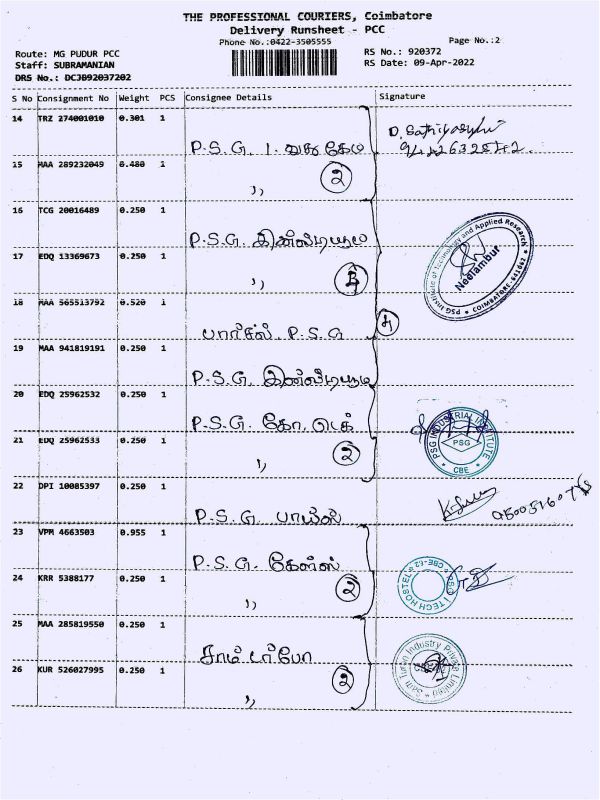 THE PROFESSIONAL COURIERS, Coimbatore
Delivery Runsheet - PCC
Phone No.:0422-3505555
Page No.:2
Route: MG PUDUR PCC
RS No.: 920372
Staff: SUBRAMANIAN
RS Date: 09-Apr-2022
DRS No.: DCJ092037202
S No Consignment No Weight PCS Consignee Details Signature
14 TRZ 274001010 0.301 1
P.S.G. 1.
15 MAA 289232049 0.480 1
,, 2
16 TCG 20016489 0.250 1
P.S.G.
17 EDQ 13369673 0.250 1
,,
18 MAA 565513792 0.520 1
பார்சல் P.S.G
19 MAA 941819191 0.250 1
P.S.G.
20 EDQ 25962532 0.250 1
P.S.G. கோ. டெக்
21 EDQ 25962533 0.250 1
,, 2
22 DPI 10085397 0.250 1
P.S.G. பாய்ஸ்
23 VPM 4663503 0.955 1
P.S.G. கேள்ஸ்
24 KRR 5388177 0.250 1
,, 2
25 MAA 285819550 0.250 1
சாம் டர்போ
26 KUR 526027995 0.250 1
,, 2
PSG Institute of Technology and Applied Research
Neelambur
COIMBATORE-641062
PSG INDUSTRIAL INSTITUTE
PSG
CBE
PSG I TECH HOSTEL
CBE-62
Sam Turbo Industry Private Limited